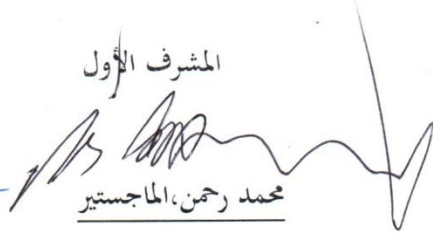 المشرف الأول
محمد رحمن،الماجستير